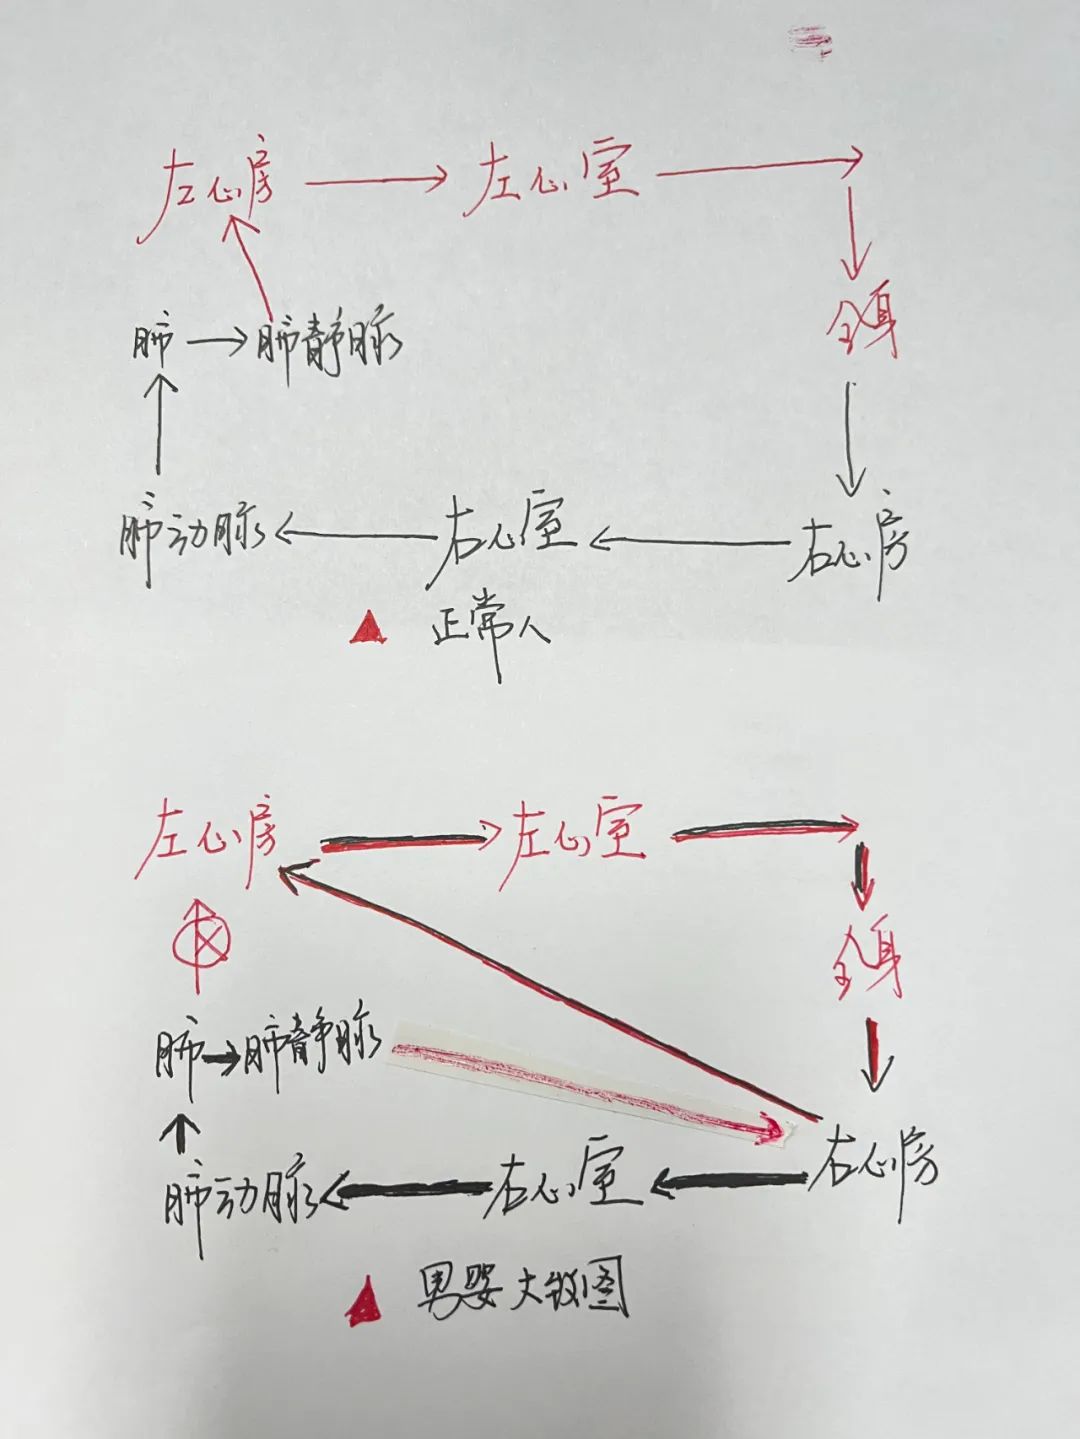 左心房 左心室
全身
肺 肺静脉
肺动脉 右心室 右心房
正常人
左心房 左心室
全身
肺 肺静脉
肺动脉 右心室 右心房
男婴大致图